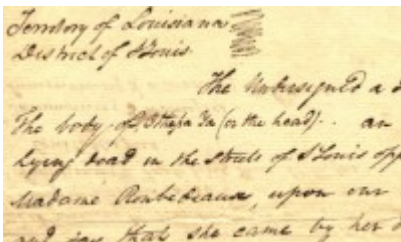 Territory of Louisiana
District of St Louis
The Undersigned a
The body of (or the head) .. an
lying dead in the streets of St Louis opp
Madame Roubedeaux, upon our
and say that she came by her